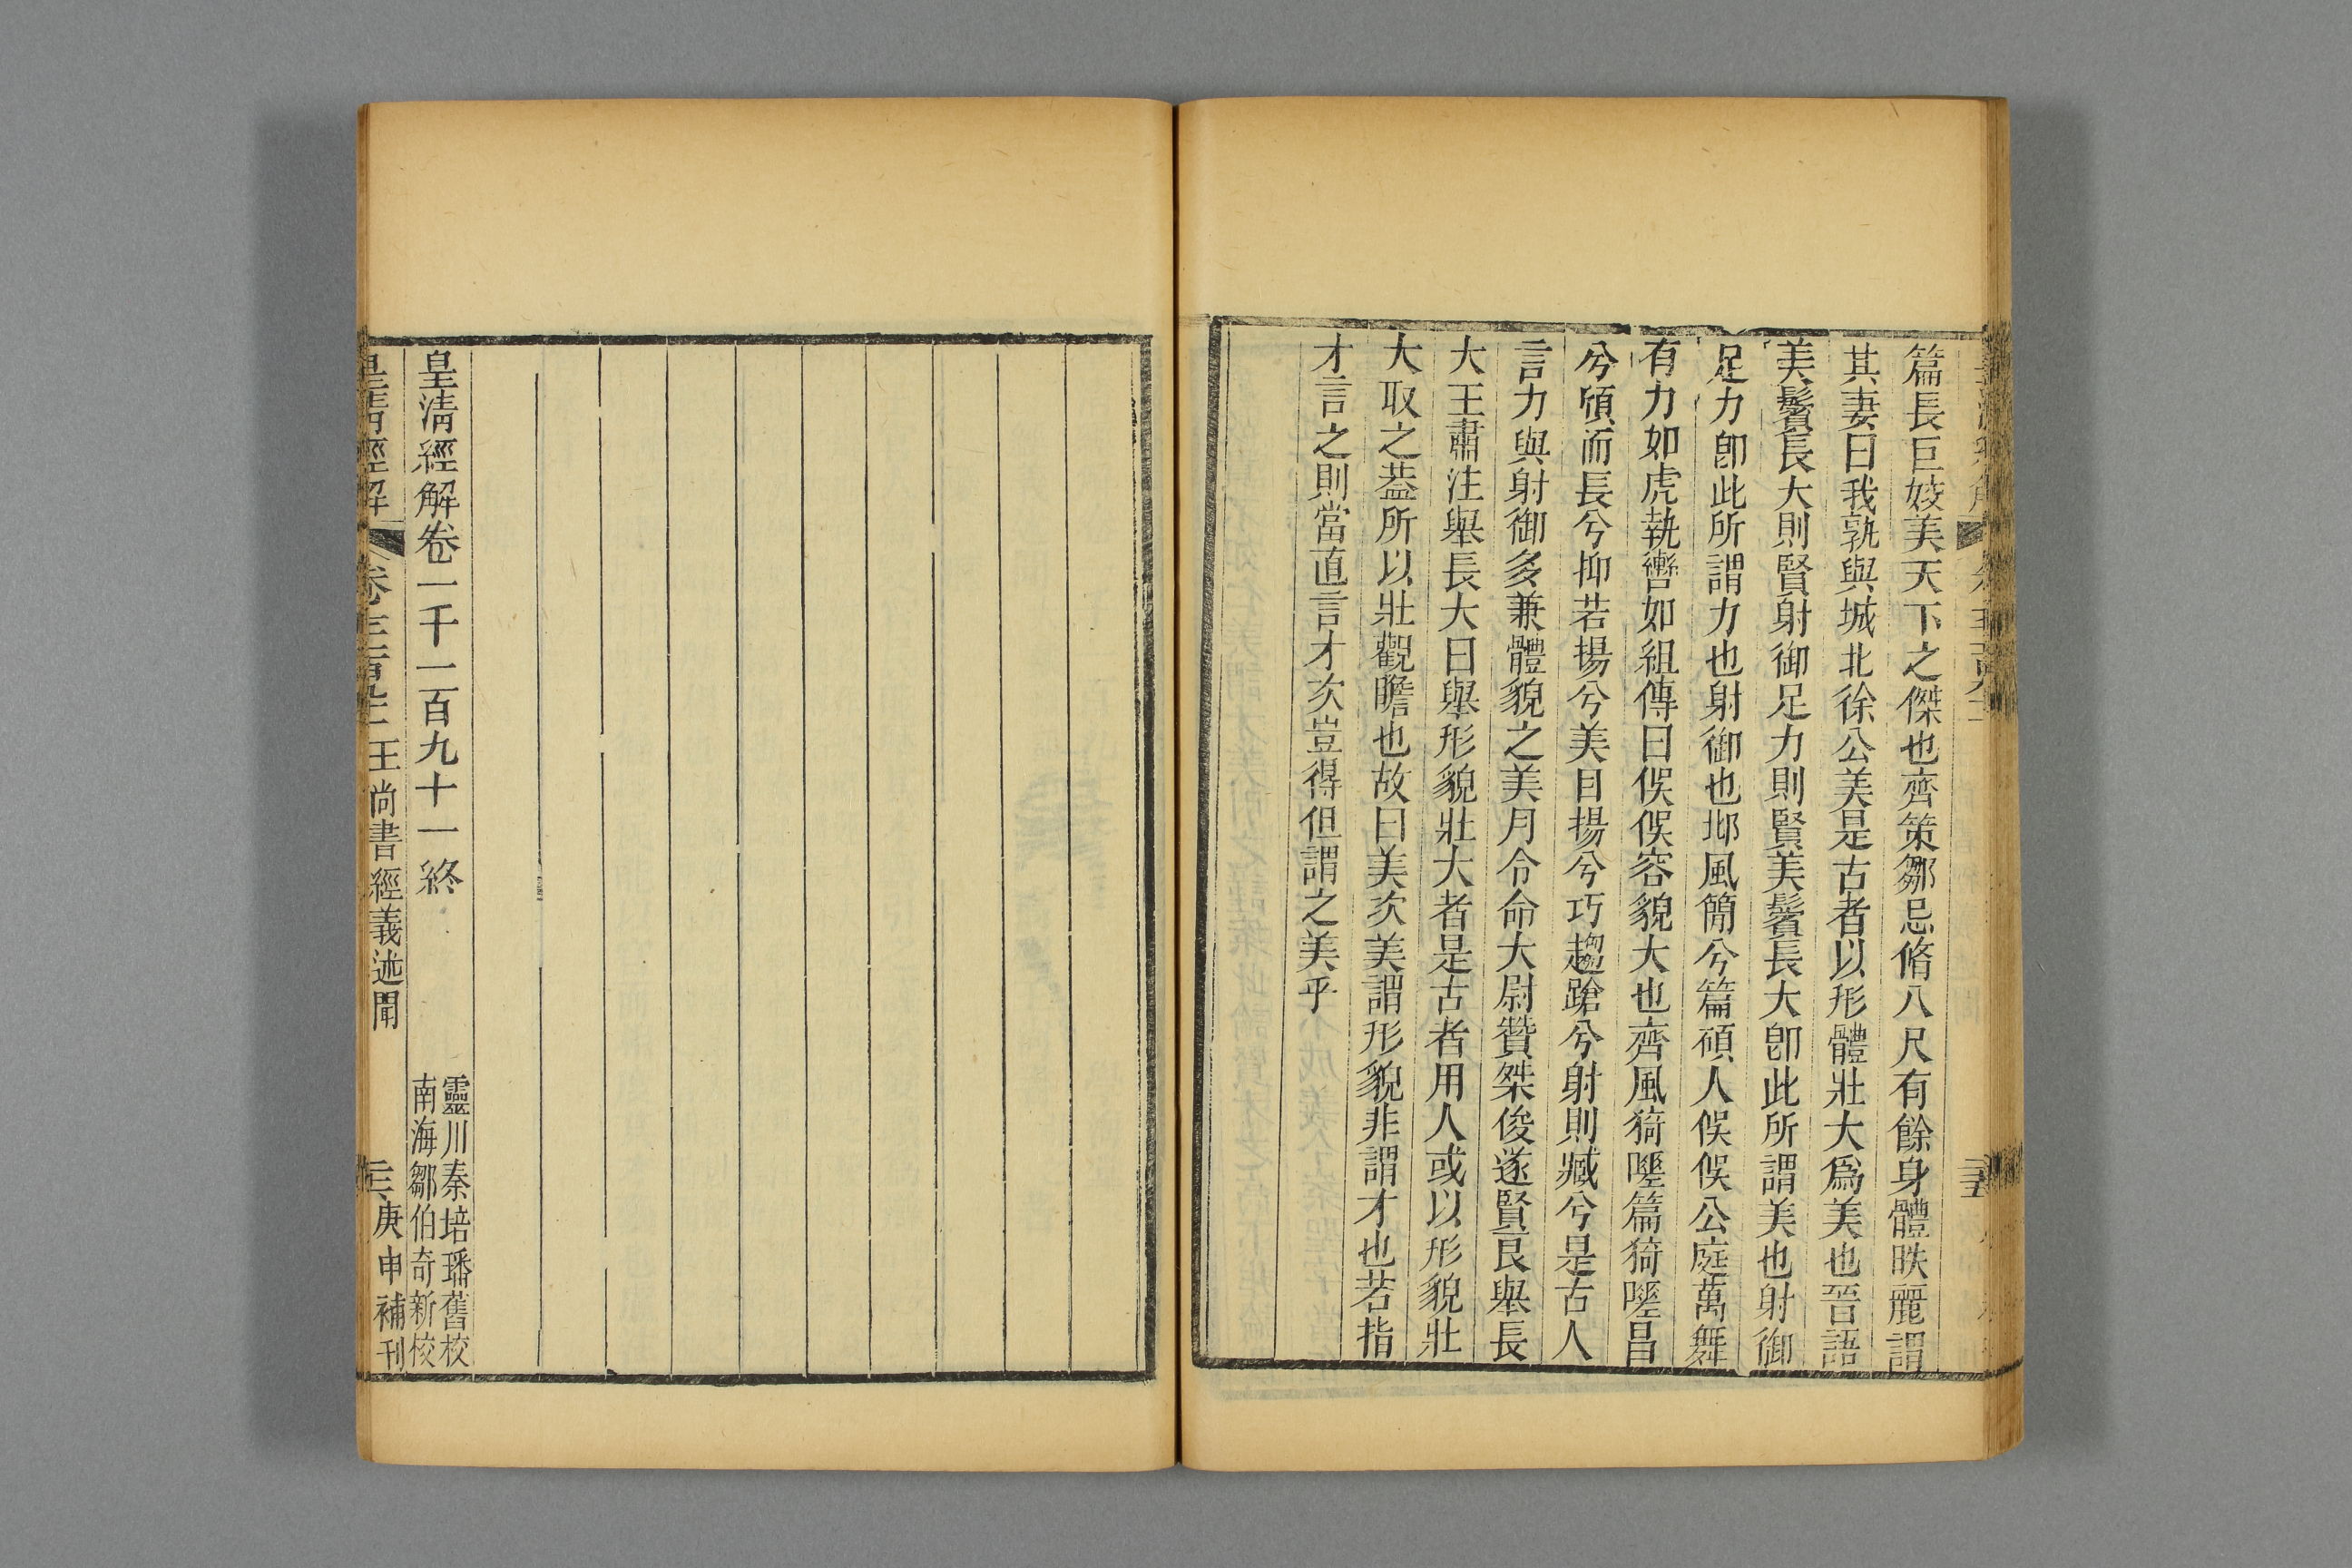 篇長巨姣美天下之傑也齊策鄒忌脩八尺有餘身體昳麗謂
其妻曰我孰與城北徐公美是古者以形體壯大爲美也晉語
美鬢長大則賢射御足力則賢美鬢長大卽此所謂美也射御
足力卽此所謂力也射御也邶風簡兮篇碩人俁俁公庭萬舞
有力如虎執轡如組傳曰俁俁容貌大也齊風猗嗟篇猗嗟昌
兮頎而長兮抑若揚兮美目揚兮巧趨蹌兮射則臧兮是古人
言力與射御多兼體貌之美月令命大尉贊桀俊遂賢良舉長
大王肅注舉長大曰舉形貌壯大者是古者用人或以形貌壯
大取之葢所以壯觀瞻也故曰美次美謂形貌非謂才也若指
才言之則當直言才次豈得但謂之美乎
皇清經解卷一千一百九十一終
靈川秦培璠舊校
南海鄒伯奇新校
皇清經解
王尚書經義述聞
庚申補刊